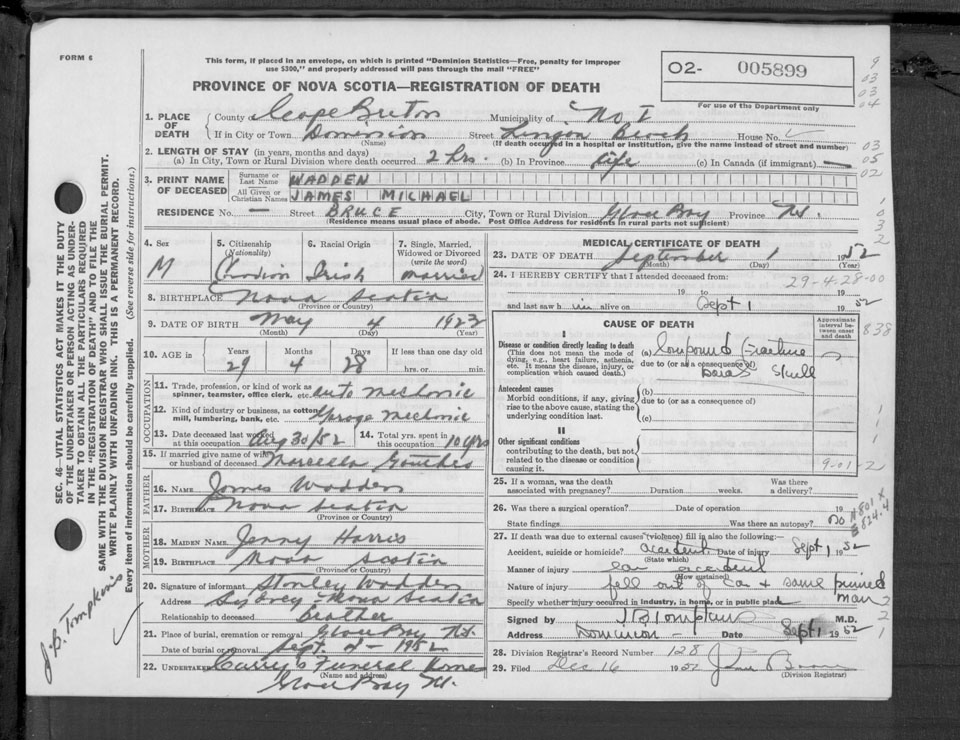 FORM 6
This form, if placed in an envelope, on which is printed "Dominion Statistics—Free, penalty for improper
use $300," and properly addressed will pass through the mail "FREE"
PROVINCE OF NOVA SCOTIA—REGISTRATION OF DEATH
O2- 005899
For use of the Department only
1. PLACE OF DEATH
County of Cape Breton Municipality of No 1
If in City or Town Dominion Street Lingan Beach House No.
(Name) (If death occurred in a hospital or institution, give the name instead of street and number)
2. LENGTH OF STAY (in years, months and days)
(a) In City, Town or Rural Division where death occurred 2 hrs. (b) In Province life (c) In Canada (if immigrant) —
3. PRINT NAME OF DECEASED
Surname or Last Name WADDEN
All Given or Christian Names JAMES MICHAEL
RESIDENCE No. — Street BRUCE City, Town or Rural Division Glace Bay Province N.S.
(Residence means usual place of abode. Post Office Address for residents in rural parts not sufficient)
4. Sex M
5. Citizenship (Nationality) Canadian
6. Racial Origin Irish
7. Single, Married, Widowed or Divorced (write the word) married
8. BIRTHPLACE Nova Scotia
(Province or Country)
9. DATE OF BIRTH May 4 1923
(Month) (Day) (Year)
10. AGE in Years 29 Months 4 Days 28 If less than one day old
hrs. or min.
OCCUPATION
11. Trade, profession, or kind of work as spinner, teamster, office clerk, etc. auto mechanic
12. Kind of industry or business, as cotton mill, lumbering, bank, etc. Garage Mechanic
13. Date deceased last worked at this occupation Aug 30/52 14. Total yrs. spent in this occupation 10 yrs
15. If married give name of wife or husband of deceased Marcella
FATHER
16. NAME James Wadden
17. BIRTHPLACE Nova Scotia
(Province or Country)
MOTHER
18. MAIDEN NAME Jenny Harris
19. BIRTHPLACE Nova Scotia
(Province or Country)
20. Signature of informant Stanley Wadden
Address Sydney - Nova Scotia
Relationship to deceased Brother
21. Place of burial, cremation or removal Glace Bay N.S.
Date of burial or removal Sept. 2 - 1952
22. UNDERTAKER Curry's Funeral Home
(Name and address)
Glace Bay N.S.
MEDICAL CERTIFICATE OF DEATH
23. DATE OF DEATH September 1 1952
(Month) (Day) (Year)
24. I HEREBY CERTIFY that I attended deceased from:
29-4-28-00
19 to 19
and last saw h im alive on Sept 1 1952
CAUSE OF DEATH
Approximate interval between onset and death
I
Disease or condition directly leading to death
(This does not mean the mode of dying, e.g., heart failure, asthenia, etc. It means the disease, injury, or complication which caused death.)
(a) Compound fracture
due to (or as a consequence of)
Skull
Antecedent causes
Morbid conditions, if any, giving rise to the above cause, stating the underlying condition last.
(b)
due to (or as a consequence of)
(c)
II
Other significant conditions
contributing to the death, but not related to the disease or condition causing it.
9-01-2
25. If a woman, was the death associated with pregnancy? Duration weeks. Was there a delivery?
26. Was there a surgical operation? Date of operation 19
State findings Was there an autopsy? no
27. If death was due to external causes (violence) fill in also the following:—
Accident, suicide or homicide? accident Date of injury Sept 1 1952
(State which)
Manner of injury car accident
(How sustained)
Nature of injury fell out of car & same pinned
man
Specify whether injury occurred in industry, in home, or in public place
Signed by J B Tompkins M.D.
Address Dominion - Date Sept 1 1952
28. Division Registrar's Record Number 128
29. Filed Dec 16 1952
(Division Registrar)
SEC. 46—VITAL STATISTICS ACT MAKES IT THE DUTY
OF THE UNDERTAKER OR PERSON ACTING AS UNDERTAKER TO OBTAIN ALL THE PARTICULARS REQUIRED
IN THE "REGISTRATION OF DEATH" AND TO FILE THE
SAME WITH THE DIVISION REGISTRAR WHO SHALL ISSUE THE BURIAL PERMIT.
WRITE PLAINLY WITH UNFADING INK. THIS IS A PERMANENT RECORD.
Every item of information should be carefully supplied. (See reverse side for instructions.)
J.B. Tompkins
9
03
03
04
03
05
02
838